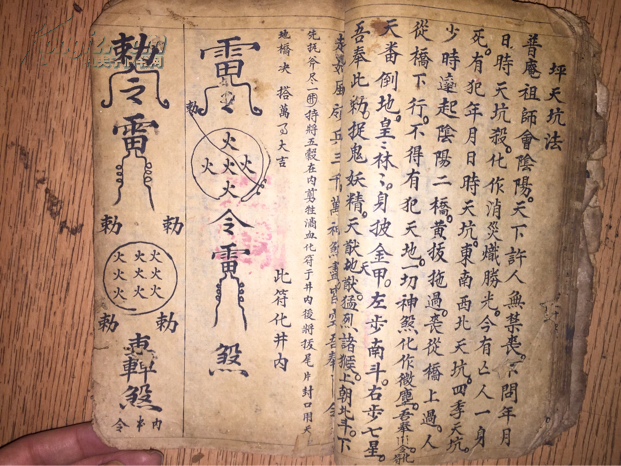 坪天坑法
普庵祖師會陰陽。天下許人無禁喪。不問年月
日時天坑殺。化作消災熾勝光。今有亡人一身
死。有犯年月日時天坑。東南西北天坑。四季天坑。
少時遠起陰陽二橋。黃拔拖過。丧從橋上過。人
從橋下行。不得有犯天地。一切神煞化作微塵。吾奉
天番倒地。皇〻林〻。身披金甲。左步南斗。右步七星。
吾奉此勅。捉鬼妖精。天猷地猷。猛烈諸猴。上朝北斗。下
兵三千萬
先託斧尽一 持將五穀在內 牲滴血化符于井內後將拔尾片封口用天
地橋決 搭萬了大吉
此符化井內
雷令
勅
火 火 火 火 火 火
令雷
煞
勅令雷
勅 勅
火 火 火 火 火 火 火 火
勅 勅
煞
令 内